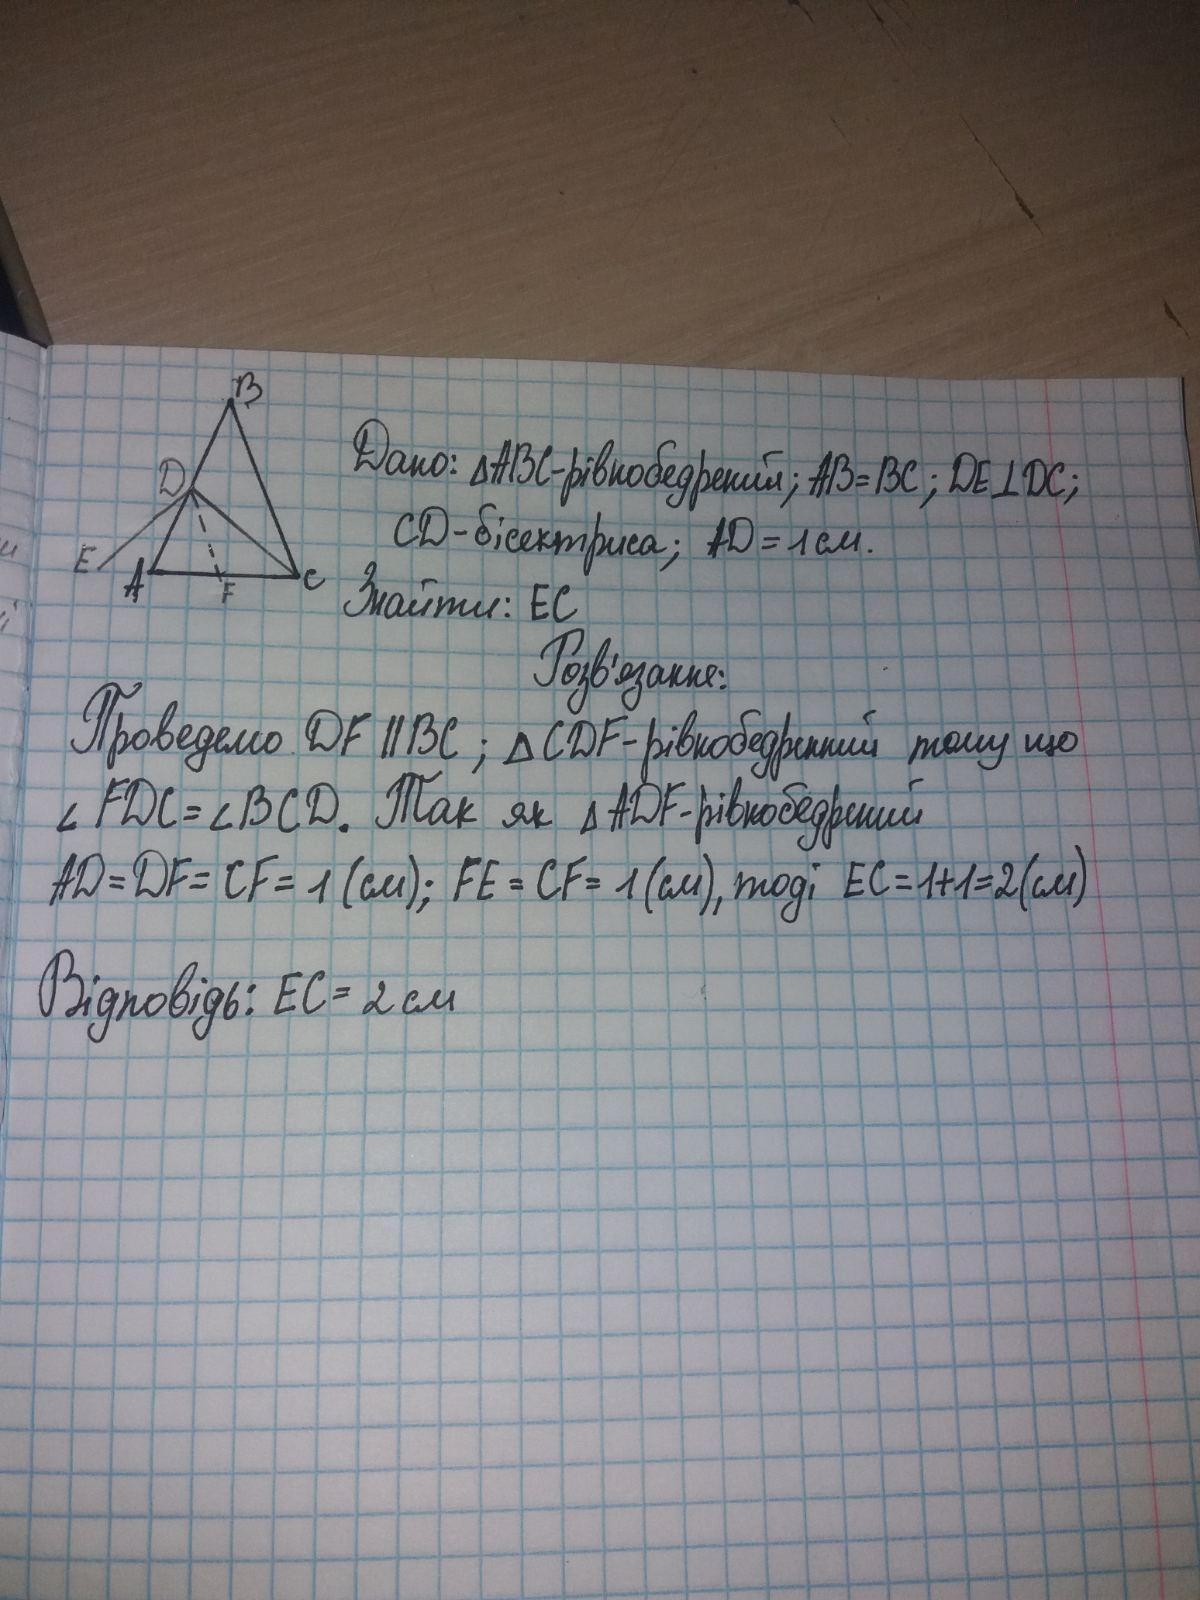 B
D
E
A
F
C
Дано: △ABC-рівнобедрений; AB=BC; DE⊥DC;
CD-бісектриса; AD=1см.
Знайти: EC
Розв'язання:
Проведемо DF||BC; △CDF-рівнобедренний тому що
∠FDC=∠BCD. Так як △ADF-рівнобедрений
AD=DF=CF=1(см); FE=CF=1(см), тоді EC=1+1=2(см)
Відповідь: EC=2см